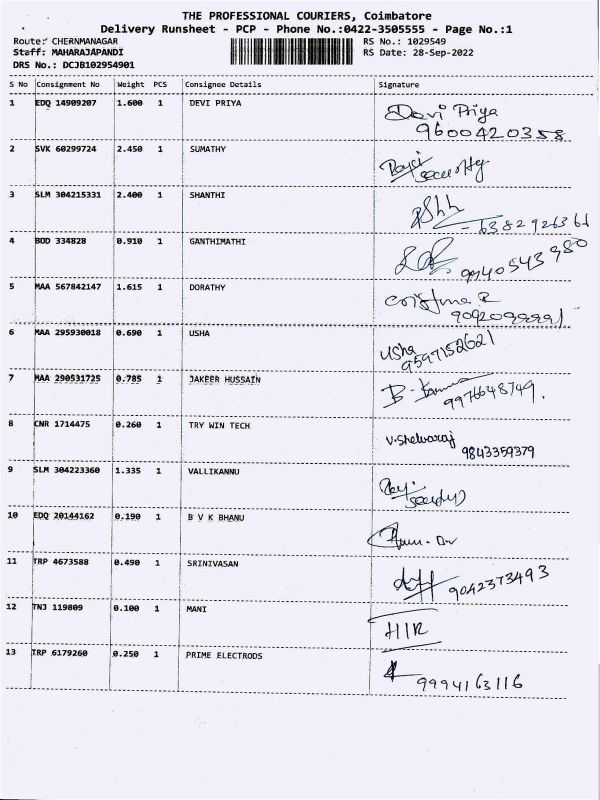 THE PROFESSIONAL COURIERS, Coimbatore
Delivery Runsheet - PCP - Phone No.:0422-3505555 - Page No.:1
Route: CHERNMANAGAR RS No.: 1029549
Staff: MAHARAJAPANDI RS Date: 28-Sep-2022
DRS No.: DCJB102954901
S No Consignment No Weight PCS Consignee Details Signature
1 EDQ 14909207 1.600 1 DEVI PRIYA Devi Priya
9600420358
2 SVK 60299724 2.450 1 SUMATHY
security
3 SLM 304215331 2.400 1 SHANTHI
4 BOD 334828 0.910 1 GANTHIMATHI
9940543980
5 MAA 567842147 1.615 1 DORATHY
6 MAA 295930018 0.690 1 USHA Usha
9597152621
7 MAA 290531725 0.785 1 JAKEER HUSSAIN
9976648749.
8 CNR 1714475 0.260 1 TRY WIN TECH V.Shelvaraj
9843359379
9 SLM 304223360 1.335 1 VALLIKANNU
10 EDQ 20144162 0.190 1 B V K BHANU
11 TRP 4673588 0.490 1 SRINIVASAN
9042373493
12 TNJ 119809 0.100 1 MANI
13 TRP 6179260 0.250 1 PRIME ELECTRODS
9994163116